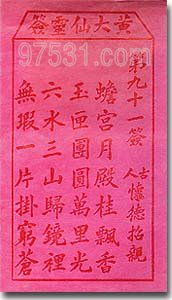 黃大仙靈簽
97531.com
第九十一簽
古人懷德招親
蟾宮月殿桂飄香
玉匣團圓萬里光
六水三山歸鏡裡
無瑕一片掛穹蒼